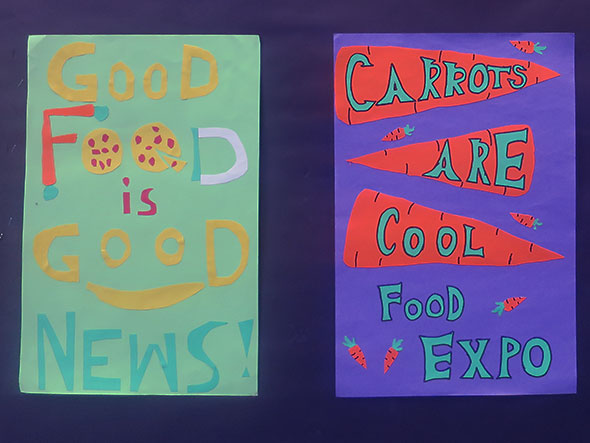 GOOD
FOOD
is
GOOD
NEWS!
CARROTS
ARE
COOL
FOOD
EXPO